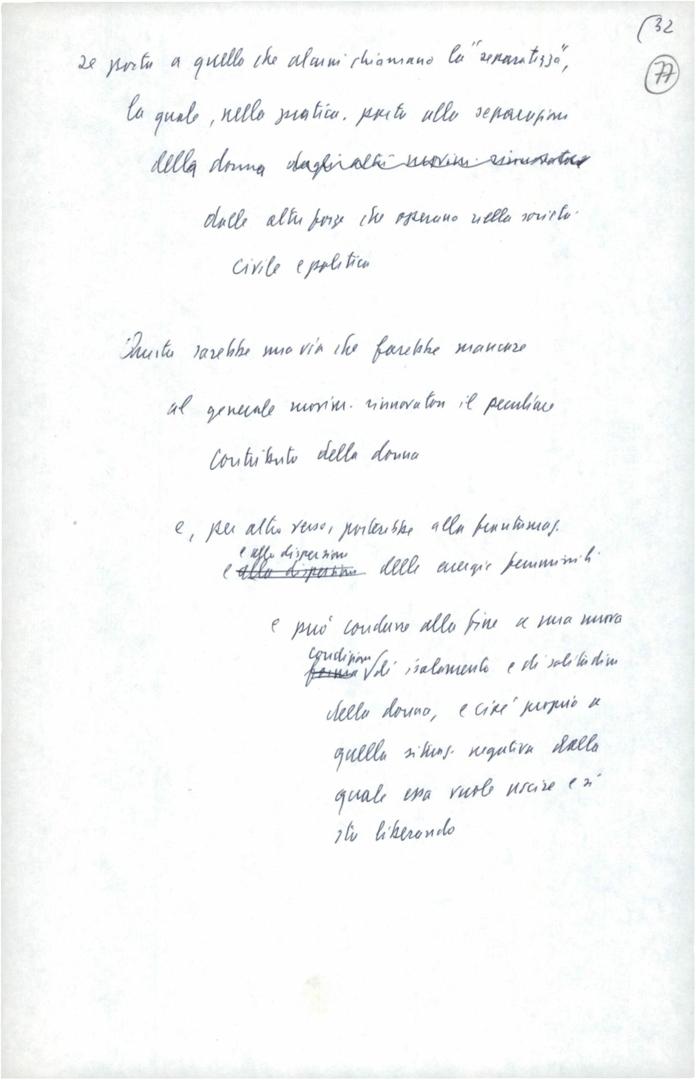 32
77
se porta a quello che alcuni chiamano la "separatezza",
la quale, nella pratica. porta alla separazione
della donna dagli altri movim. rinnovatori
dalle altre forze che operano nella società
civile e politica
Questa sarebbe una via che farebbe mancare
al generale movim. rinnovatore il peculiare
contributo della donna
e, per altro verso, porterebbe alla frantumaz.
e alla dispersione
e alla dispersione delle energie femminili
e può condurre alla fine a una nuova
condizione
forma di isolamento e di solitudine
della donna, e cioè proprio a
quella situaz. negativa dalla
quale essa vuole uscire e si
sta liberando